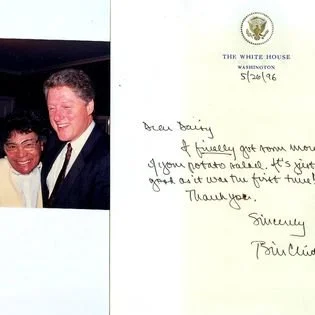 THE WHITE HOUSE
WASHINGTON
5/26/96
Dear Daisy
I finally got som more
of your potato salad. It's just
good as it was the first time!
Thank you.
Sincerely
Bill Clin